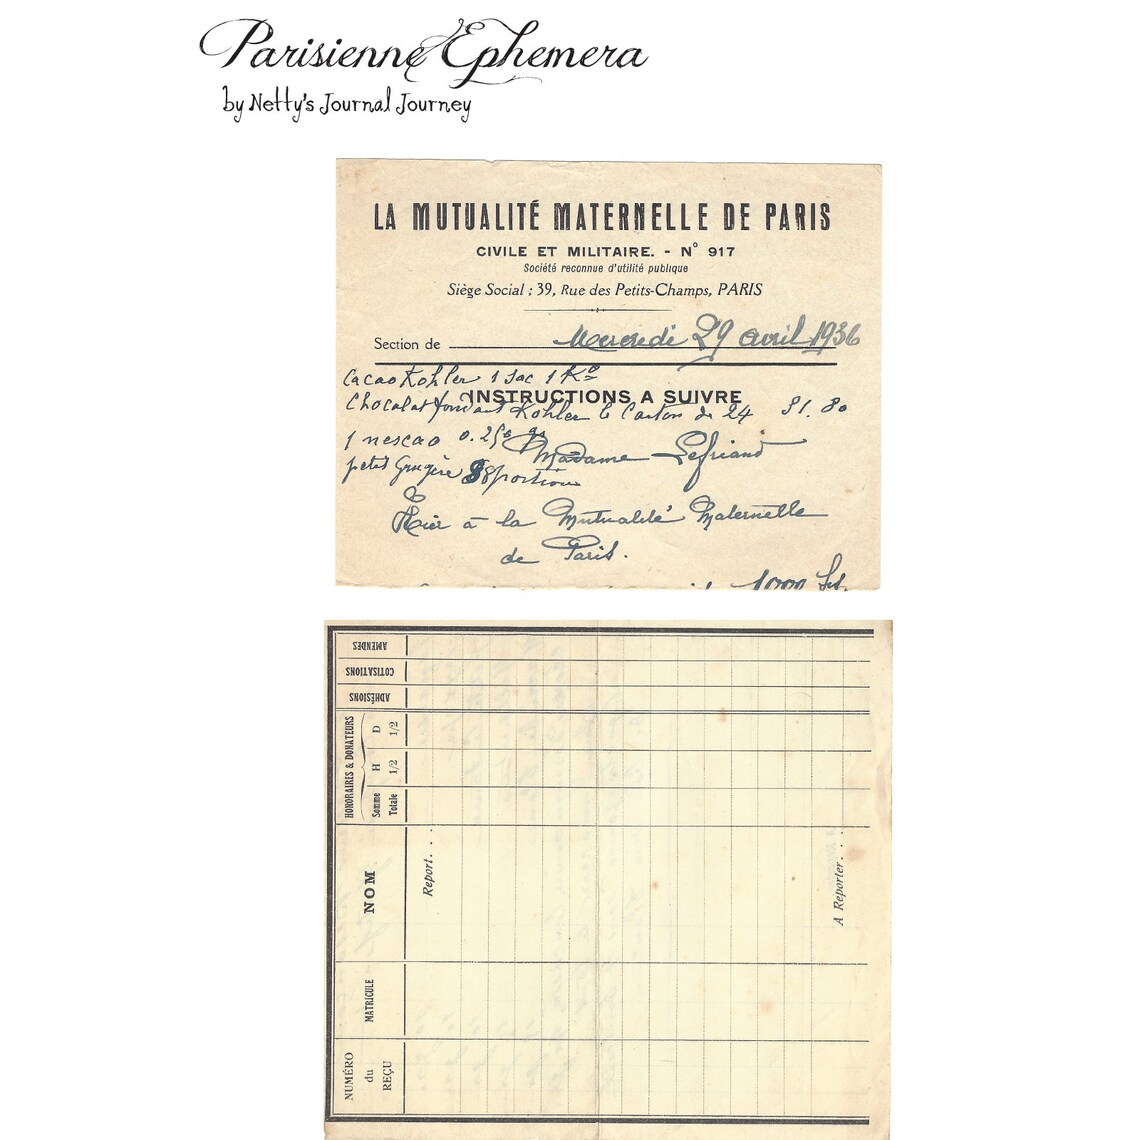 Parisienne Ephemera
by Netty's Journal Journey
LA MUTUALITÉ MATERNELLE DE PARIS
CIVILE ET MILITAIRE. - N° 917
Société reconnue d'utilité publique
Siège Social : 39, Rue des Petits-Champs, PARIS
Section de Mercredi 29 avril 1936
Cacao Kohler 1 sac 1 K°
INSTRUCTIONS A SUIVRE
Chocolat fondant Kohler le Carton de 24 31.80
1 nescao 0.250 gs
Madame
petit Gruyère 8 portions
Hier à la Mutualité Maternelle
de Paris.
1000
AMENDES
COTISATIONS
ADHÉSIONS
HONORAIRES & DONATEURS
D 1/2
H 1/2
Somme Totale
NOM
Report. . .
A Reporter. . .
MATRICULE
NUMÉRO
du
REÇU